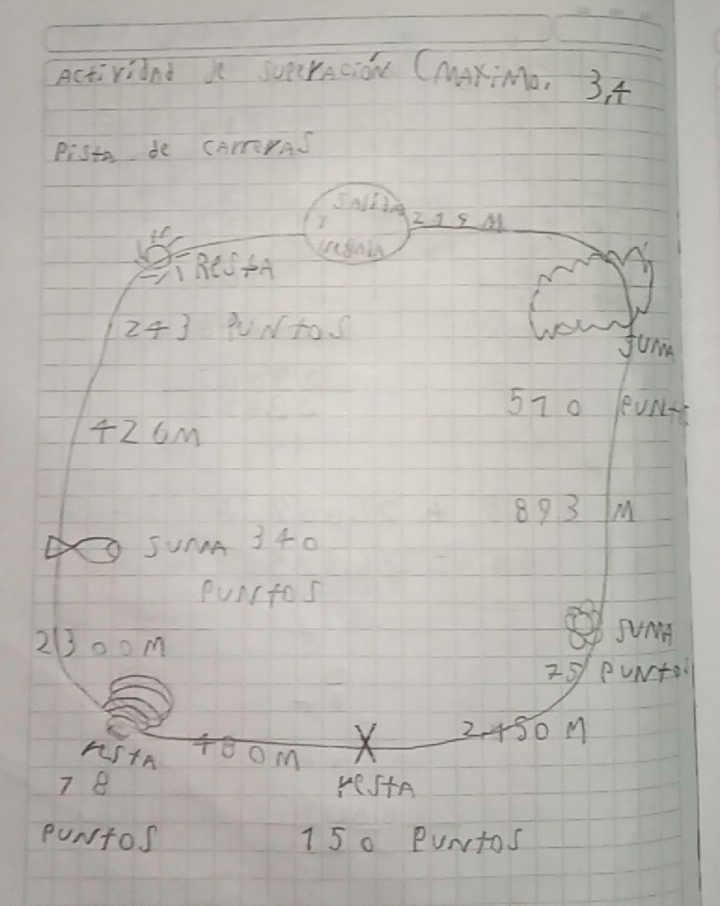 Actividad de superación (MAXiMo. 3,4
Pista de carreras
Salida
219 M
RESTA
243 PUNTOS
SUMA
510 PUNTOS
426M
893 M
SUMA 340
PUNTOS
SUMA
75 PUNTOS
2300M
2450 M
480M
resta
78
PUNTOS
resta
150 PUNTOS